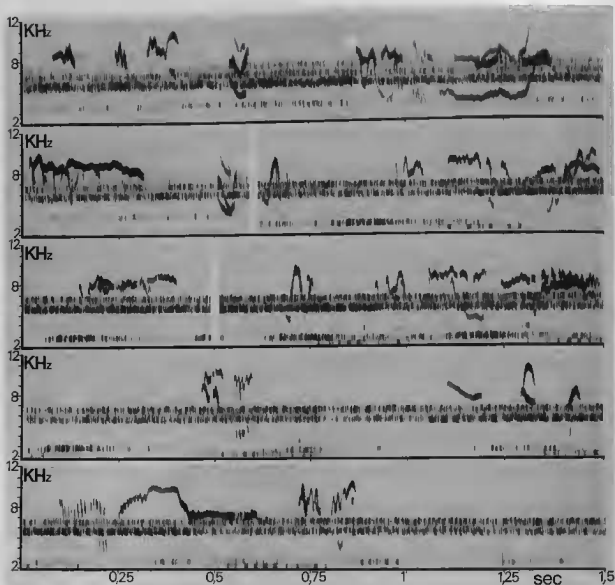 12
KHz
8
2
12
KHz
8
2
12
KHz
8
2
12
KHz
8
2
12
KHz
8
2
0,25 0,5 0,75 1 1,25 sec 1,5